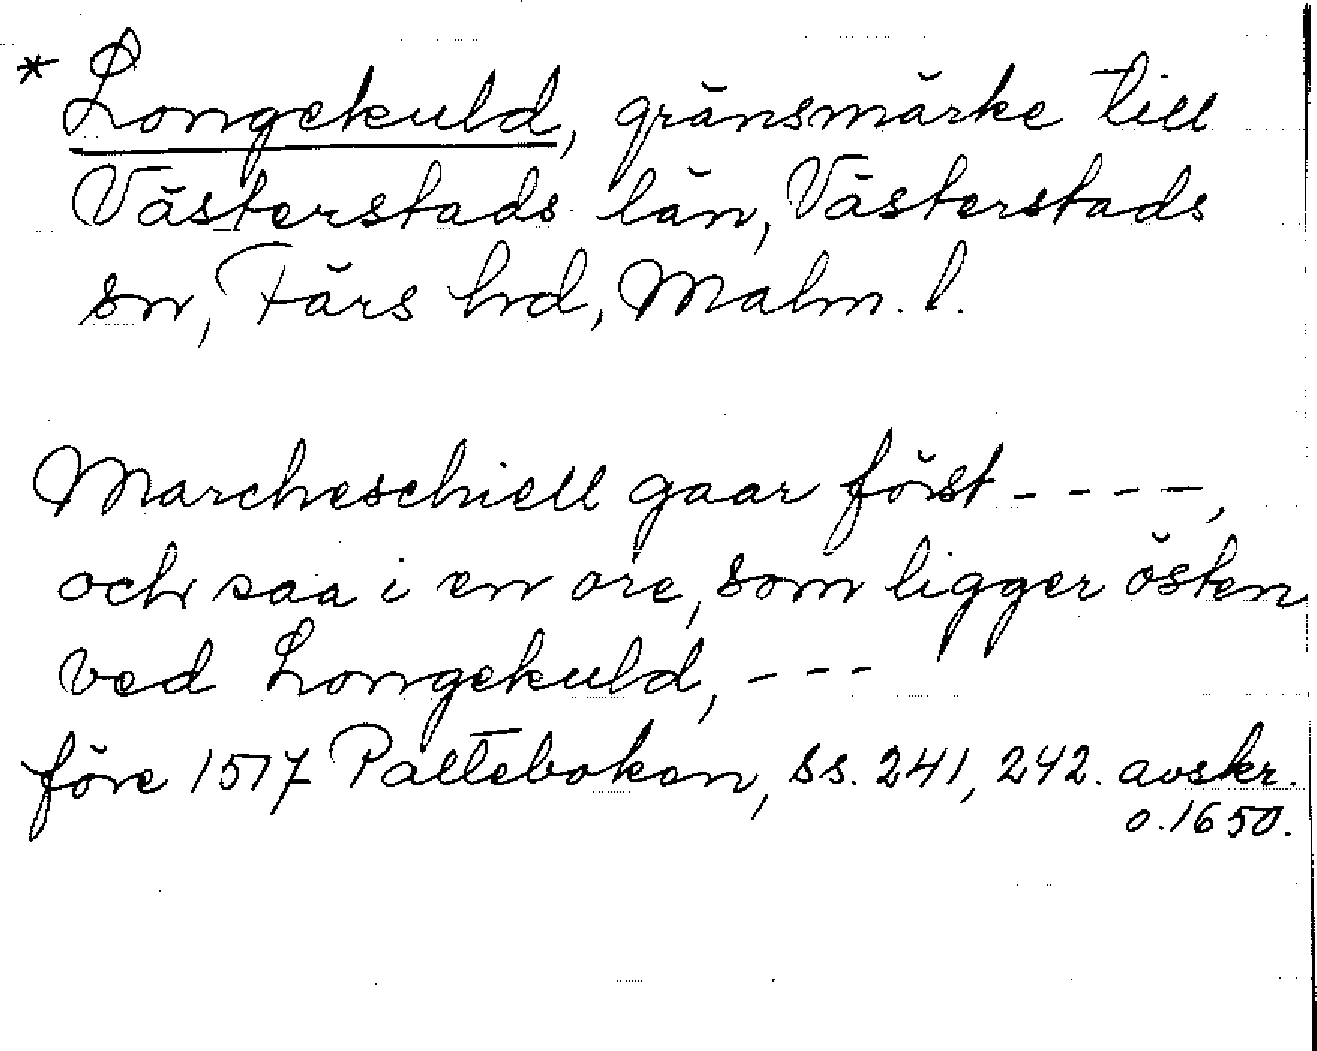 * Longekuld, gränsmärke till
Västerstads län, Västerstads
sn, Färs hd, Malm. l.
Marcheschiell gaar först - - - -,
och saa i en ore, som ligger östen
ved Longekuld, - - -
före 1517 Palteboken, ss. 241, 242. avskr.
o. 1650.